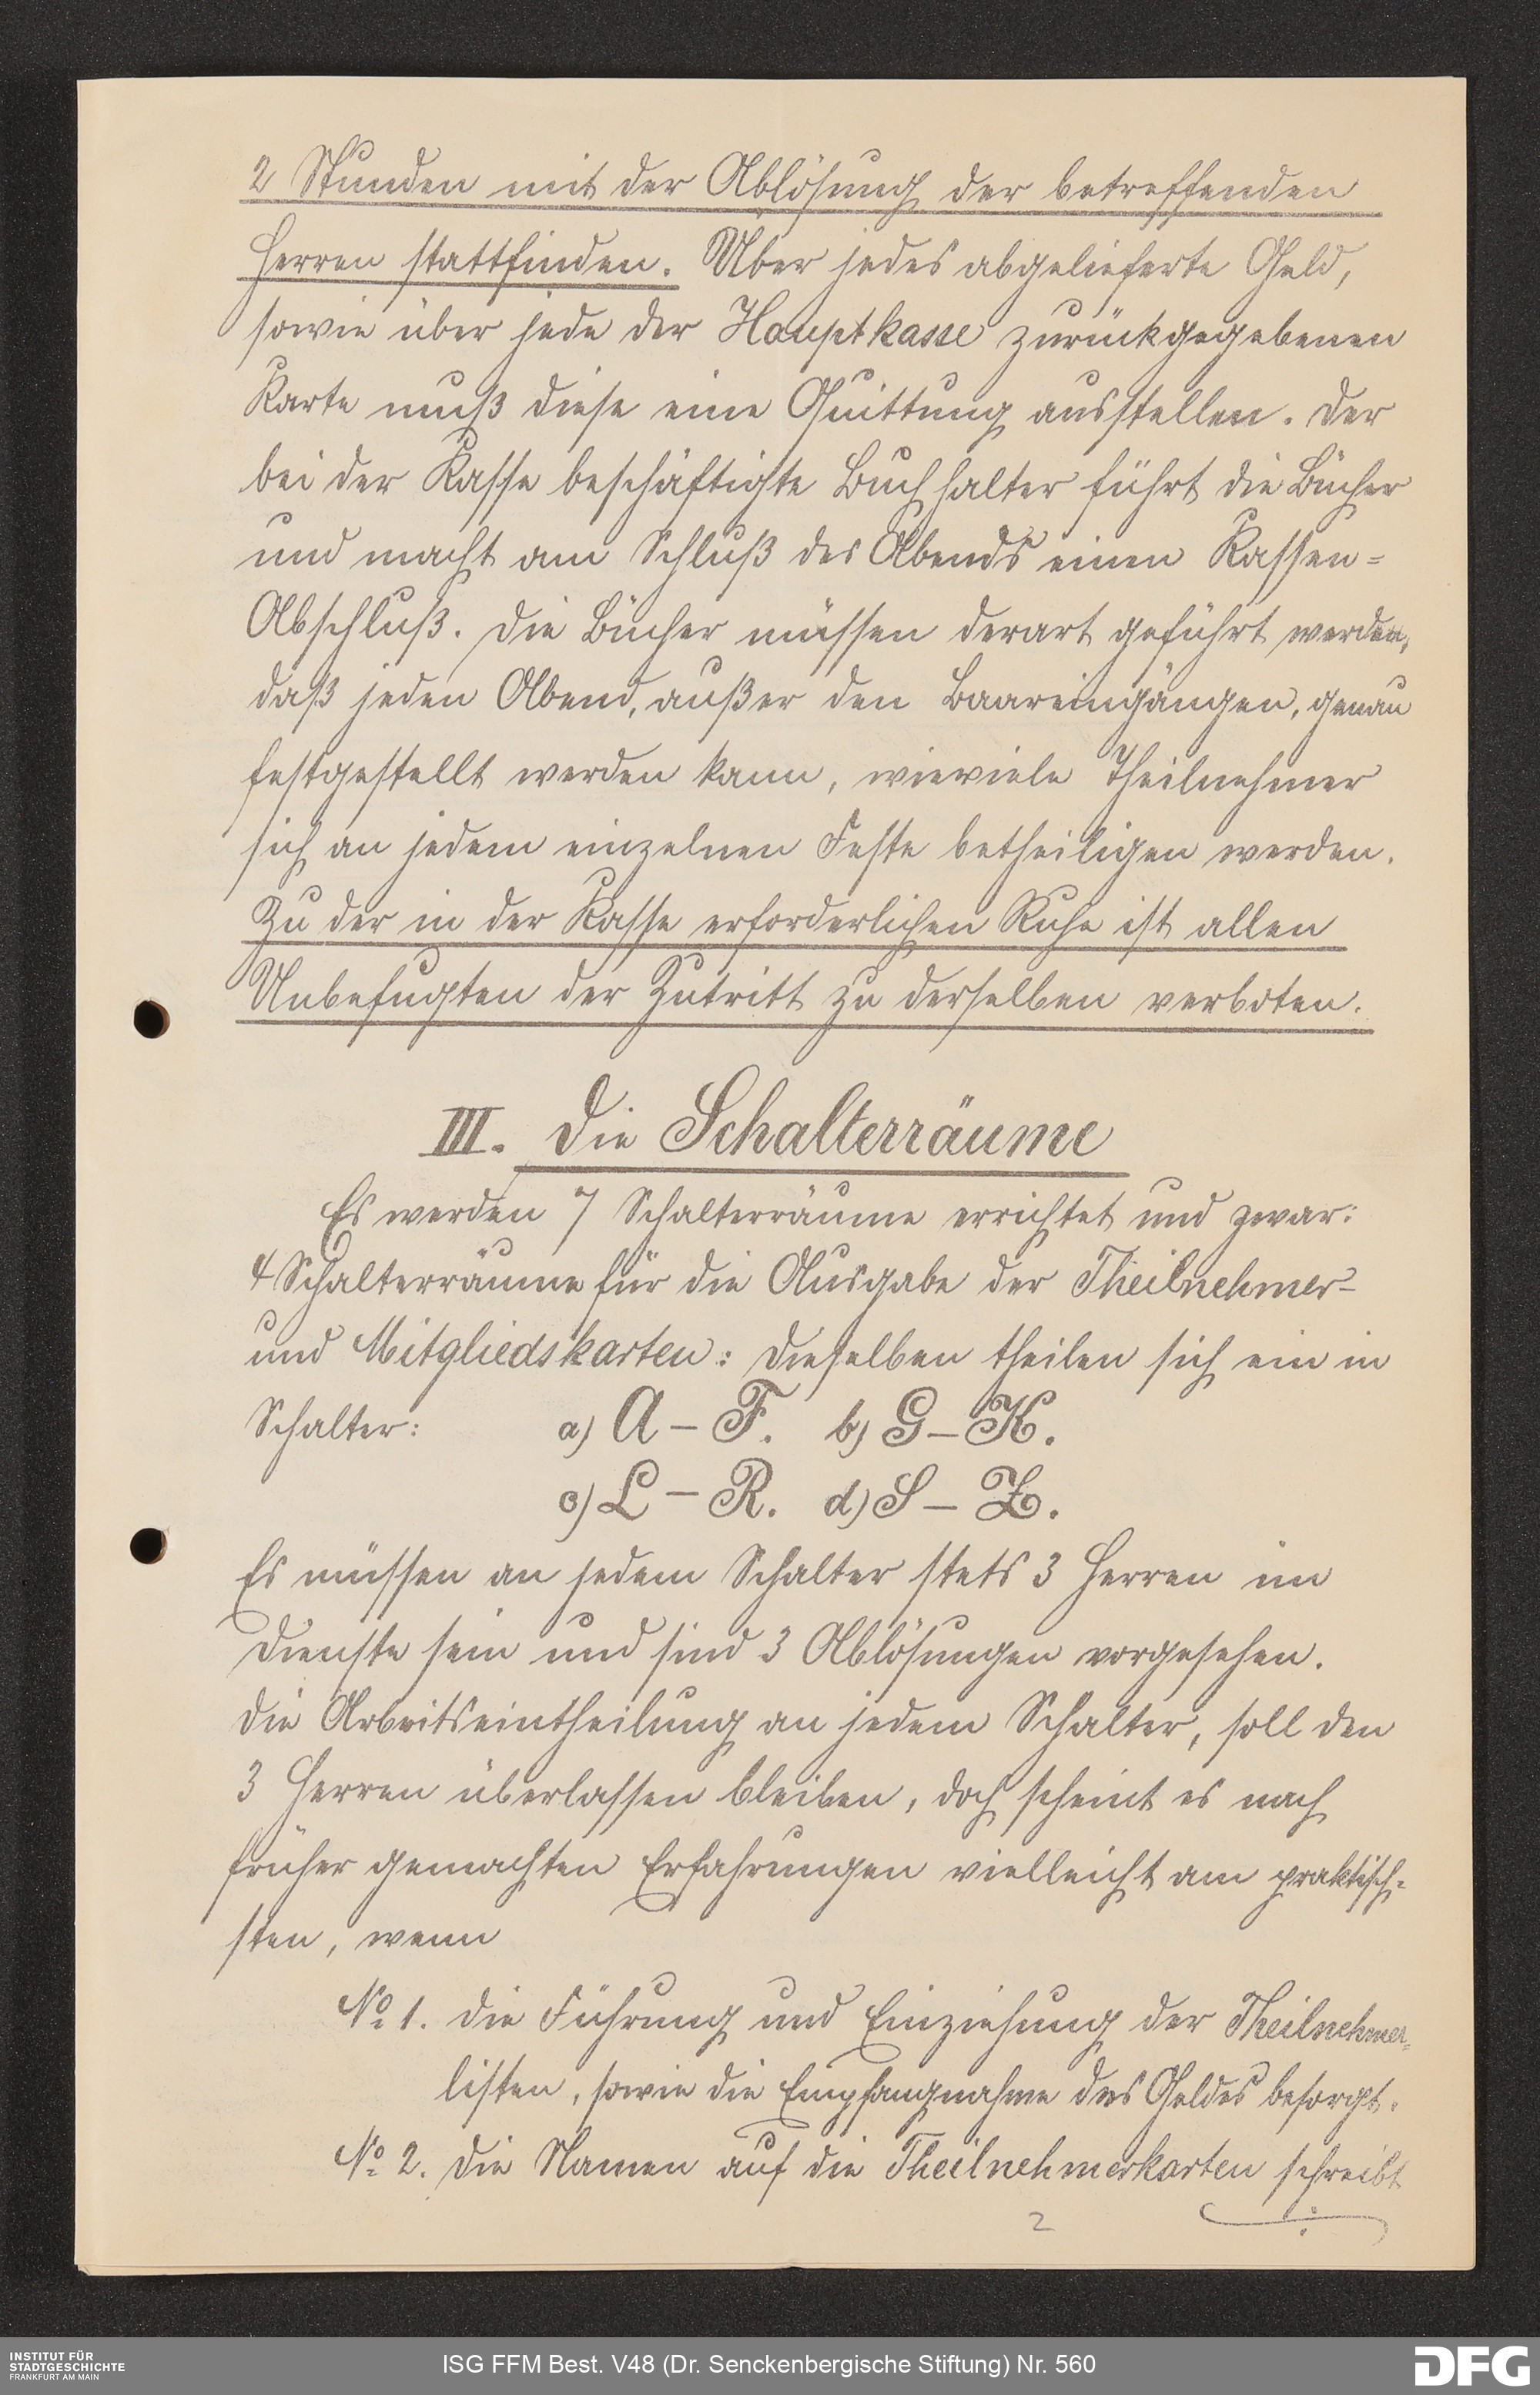 2 Stunden mit der Ablösung der betreffenden
Herren stattfinden. Über jedes abgelieferte Geld,
sowie über jede der Hauptkasse zurückgegebenen
Karte muß diese eine Quittung ausstellen. Der
bei der Kasse beschäftigte Buchhalter führt die Bücher
und macht am Schluß des Abends einen Kassen-
Abschluß. Die Bücher müssen derart geführt werden,
daß jeden Abend, außer den Baareingängen, genau
festgestellt werden kann, wieviele Theilnehmer
sich an jedem einzelnen Feste betheiligen werden.
Zu der in der Kasse erforderlichen Ruhe ist allen
Unbefugten der Zutritt zu derselben verboten.
III. Die Schalterräume
Es werden 7 Schalterräume errichtet und zwar:
4 Schalterräume für die Ausgabe der Theilnehmer-
und Mitgliedskarten: Dieselben theilen sich ein in
Schalter: a) A – F. b) G – K.
c) L – R. d) S – Z.
Es müssen an jedem Schalter stets 3 Herren im
Dienste sein und sind 3 Ablösungen vorgesehen.
Die Arbeitseintheilung an jedem Schalter, soll den
3 Herren überlassen bleiben, doch scheint es nach
früher gemachten Erfahrungen vielleicht am praktisch-
sten, wenn
No. 1. die Führung und Einziehung der Theilnehmer-
listen, sowie die Empfangnahme des Geldes besorgt.
No. 2. die Namen auf die Theilnehmerkarten schreibt
2
INSTITUT FÜR
STADTGESCHICHTE
FRANKFURT AM MAIN
ISG FFM Best. V48 (Dr. Senckenbergische Stiftung) Nr. 560
DFG